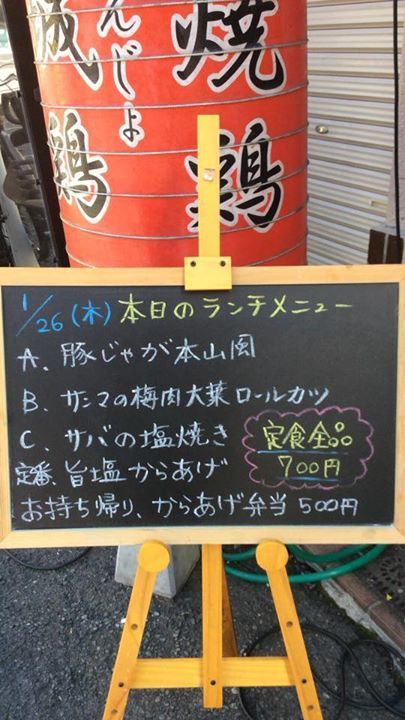 んじょ
焼鶏
鶏
1/26(木)本日のランチメニュー
A、豚じゃが本山風
B、サンマの梅肉大葉ロールカツ
C、サバの塩焼き
定番、旨塩からあげ
定食全品
700円
お持ち帰り、からあげ弁当500円